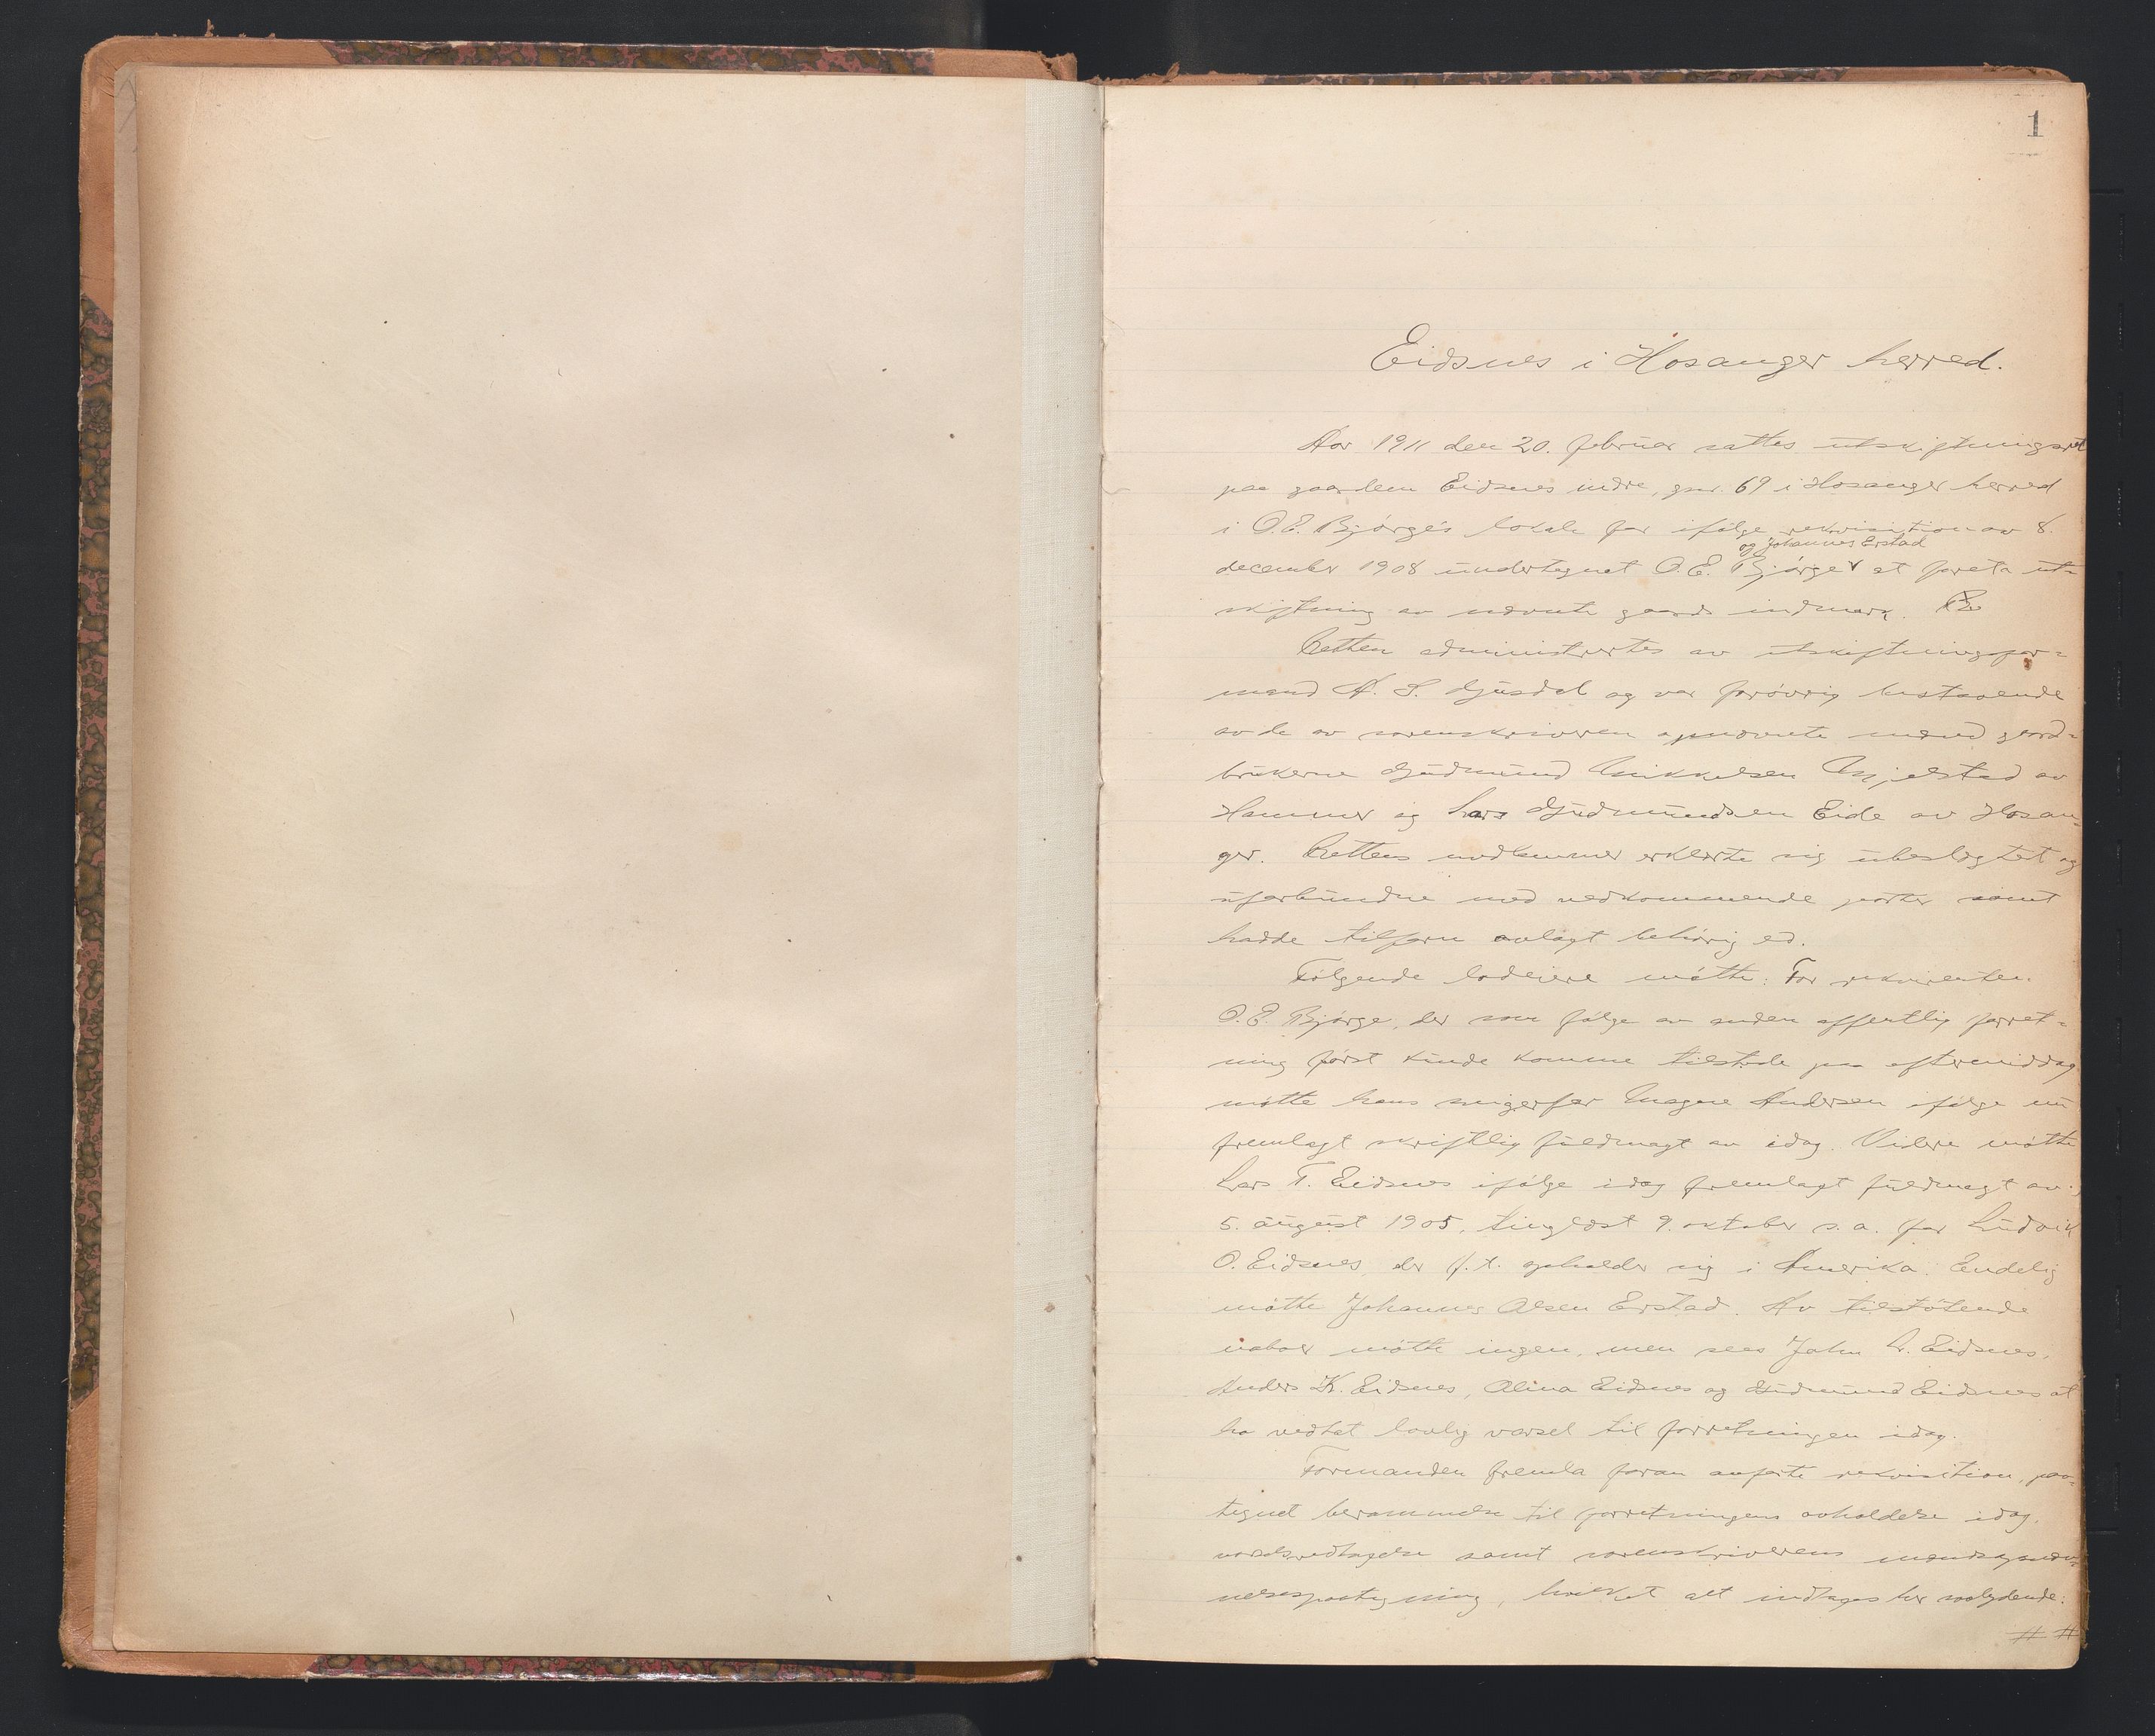 1
Eidsnes i Hosanger herred.
Aar 1911 den 20. februar sattes utskiftningsret
paa gaarden Eidsnes indre, gnr. 69 i Hosanger herred
i O. E. Bjørge's lokale for ifølge rekvisition av 8.
og Johannes Erstad
december 1908 undertegnet O. E. Bjørge at foreta ut-
skiftning av nævnte gaards indmark.
Retten administrertes av utskiftningsfor-
mand A. S. Gjusdal og var forøvrig bestaaende
av de av sorenskriveren opnævnte mænd gaard-
brukerne Gudmund Mikkelsen Mjelstad av
Hammer og Lars Gudmundsen Eide av Hosan-
ger. Rettens medlemmer erklærte sig ubeslægtet og
uforbundne med vedkommende parter samt
hadde tilforn avlagt behørig ed.
Følgende lodeiere møtte: For rekvirenten
O. E. Bjørge, der som følge av anden offentlig forret-
ning først kunde komme tilstede paa eftermiddag
møtte hans svigerfar Magne Andersen ifølge nu
fremlagt skriftlig fuldmagt av idag. Videre møtte
Lars T. Eidsnes ifølge idag fremlagt fuldmagt av
5. august 1905, tinglæst 9. oktober s. a. for Ludvik
O. Eidsnes, der f. t. opholder sig i Amerika. Endelig
møtte Johannes Olsen Erstad. Av tilstøtende
naboer møtte ingen, men sees John L. Eidsnes,
Anders K. Eidsnes, Olina Eidsnes og Gudmund Eidsnes at
ha vedtat lovlig varsel til forretningen idag.
Formanden fremla foran anførte rekvisition, paa-
tegnet berammelse til forretningens avholdelse idag,
varselsvedtagelse samt sorenskriverens mandsopnæv-
nelsespaategning, hvilket alt indtages her saalydende: